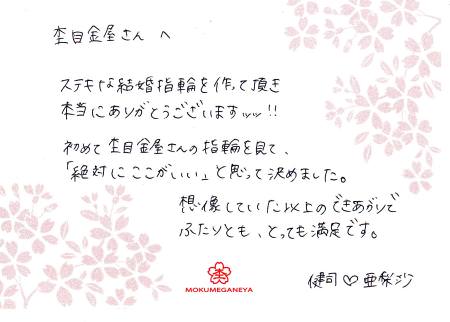 杢目金屋さん へ
ステキな結婚指輪を作って頂き
本当にありがとうございますッッ!!
初めて杢目金屋さんの指輪を見て、
「絶対にここがいい」と思って決めました。
想像していた以上のできあがりで
ふたりとも、とっても満足です。
健司♡亜梨沙
杢
MOKUMEGANEYA